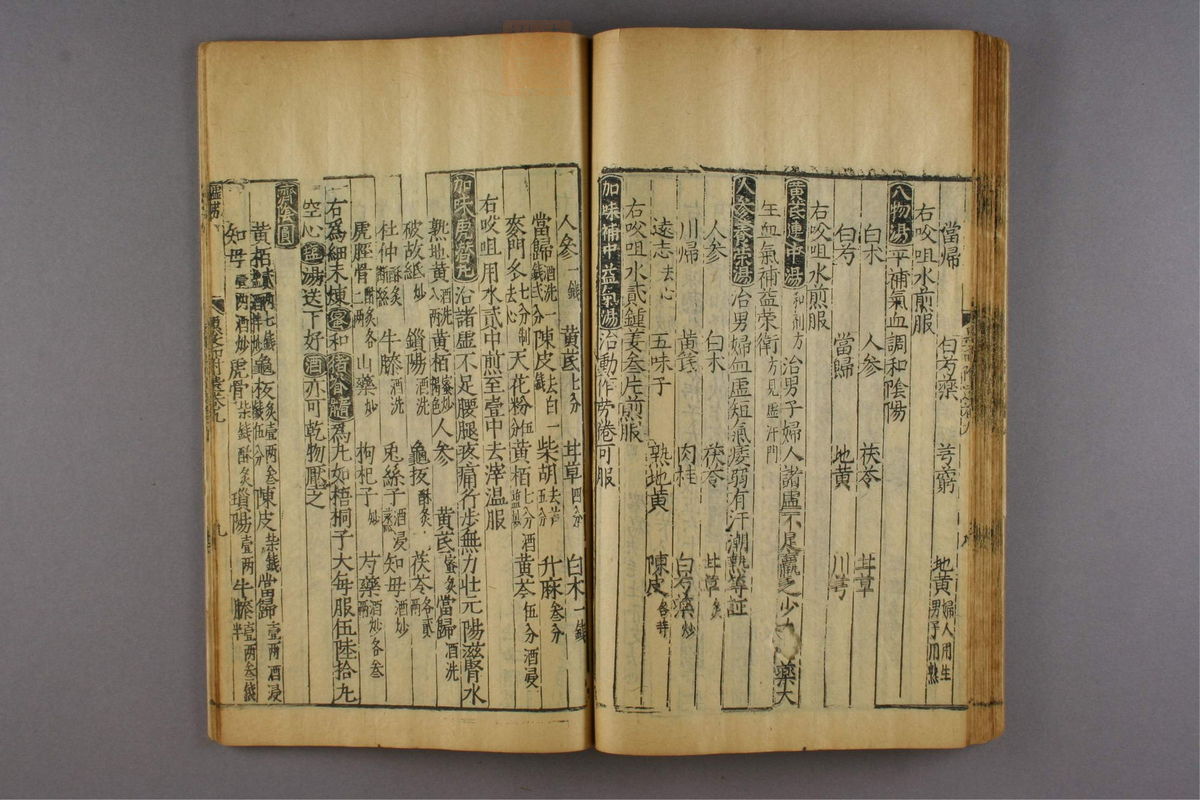 當歸 白芍藥 芎藭 地黄 婦人用生 男子用熟
右㕮咀水煎服
八物湯 平補氣血調和陰陽
白术 人參 茯苓 甘草
白芍 當歸 地黄 川芎
右㕮咀水煎服
黄芪建中湯 治男子婦人諸虚不足羸乏少力 藥大
生血氣補益荣衛 方見虚汗門
人參養荣湯 治男婦血虚短氣疲弱有汗潮熱等証
人參 白术 茯苓 甘草 炙
川歸 黄芪 肉桂 白芍藥 炒
遠志 去心 五味子 熟地黄 陳皮 各等
右㕮咀水貳鍾姜叁片煎服
加味補中益氣湯 治動作劳倦可服
人參 一錢 黄芪 七分 甘草 四分 白术 一錢
當歸 酒洗一錢弍分 陳皮 去白一錢 柴胡 去芦五分 升麻 叁分
麥門冬 七分制去心 天花粉 伍分 黄栢 七分 酒黄芩 伍分酒浸
右㕮咀用水貳中煎至壹中去滓温服
加味虎潛丸 治諸虚不足腰腿疼痛行步無力壮元陽滋腎水
熟地黄 酒洗八两 黄栢 蜜炒褐色 人參 黄芪 蜜炙 當歸 酒洗
破故紙 炒 鎖陽 酒洗 龜板 酥炙 茯苓 各貳两
杜仲 酥炙 牛膝 酒洗 兎絲子 酒浸 知母 酒炒
虎脛骨 酥炙二两 山藥 炒 枸杞子 炒 芍藥 酒炒各叁两
右為細末煉蜜和猪脊髓為丸如梧桐子大每服伍陸拾丸
空心鹽湯送下好酒亦可乾物壓之
濟陰圓
黄栢 龜板 陳皮 柒錢 當歸 壹两酒浸
知母 壹两酒炒 虎骨 柒錢酥炙 鎖陽 壹两 牛膝 壹两叁錢半
虚劳
九